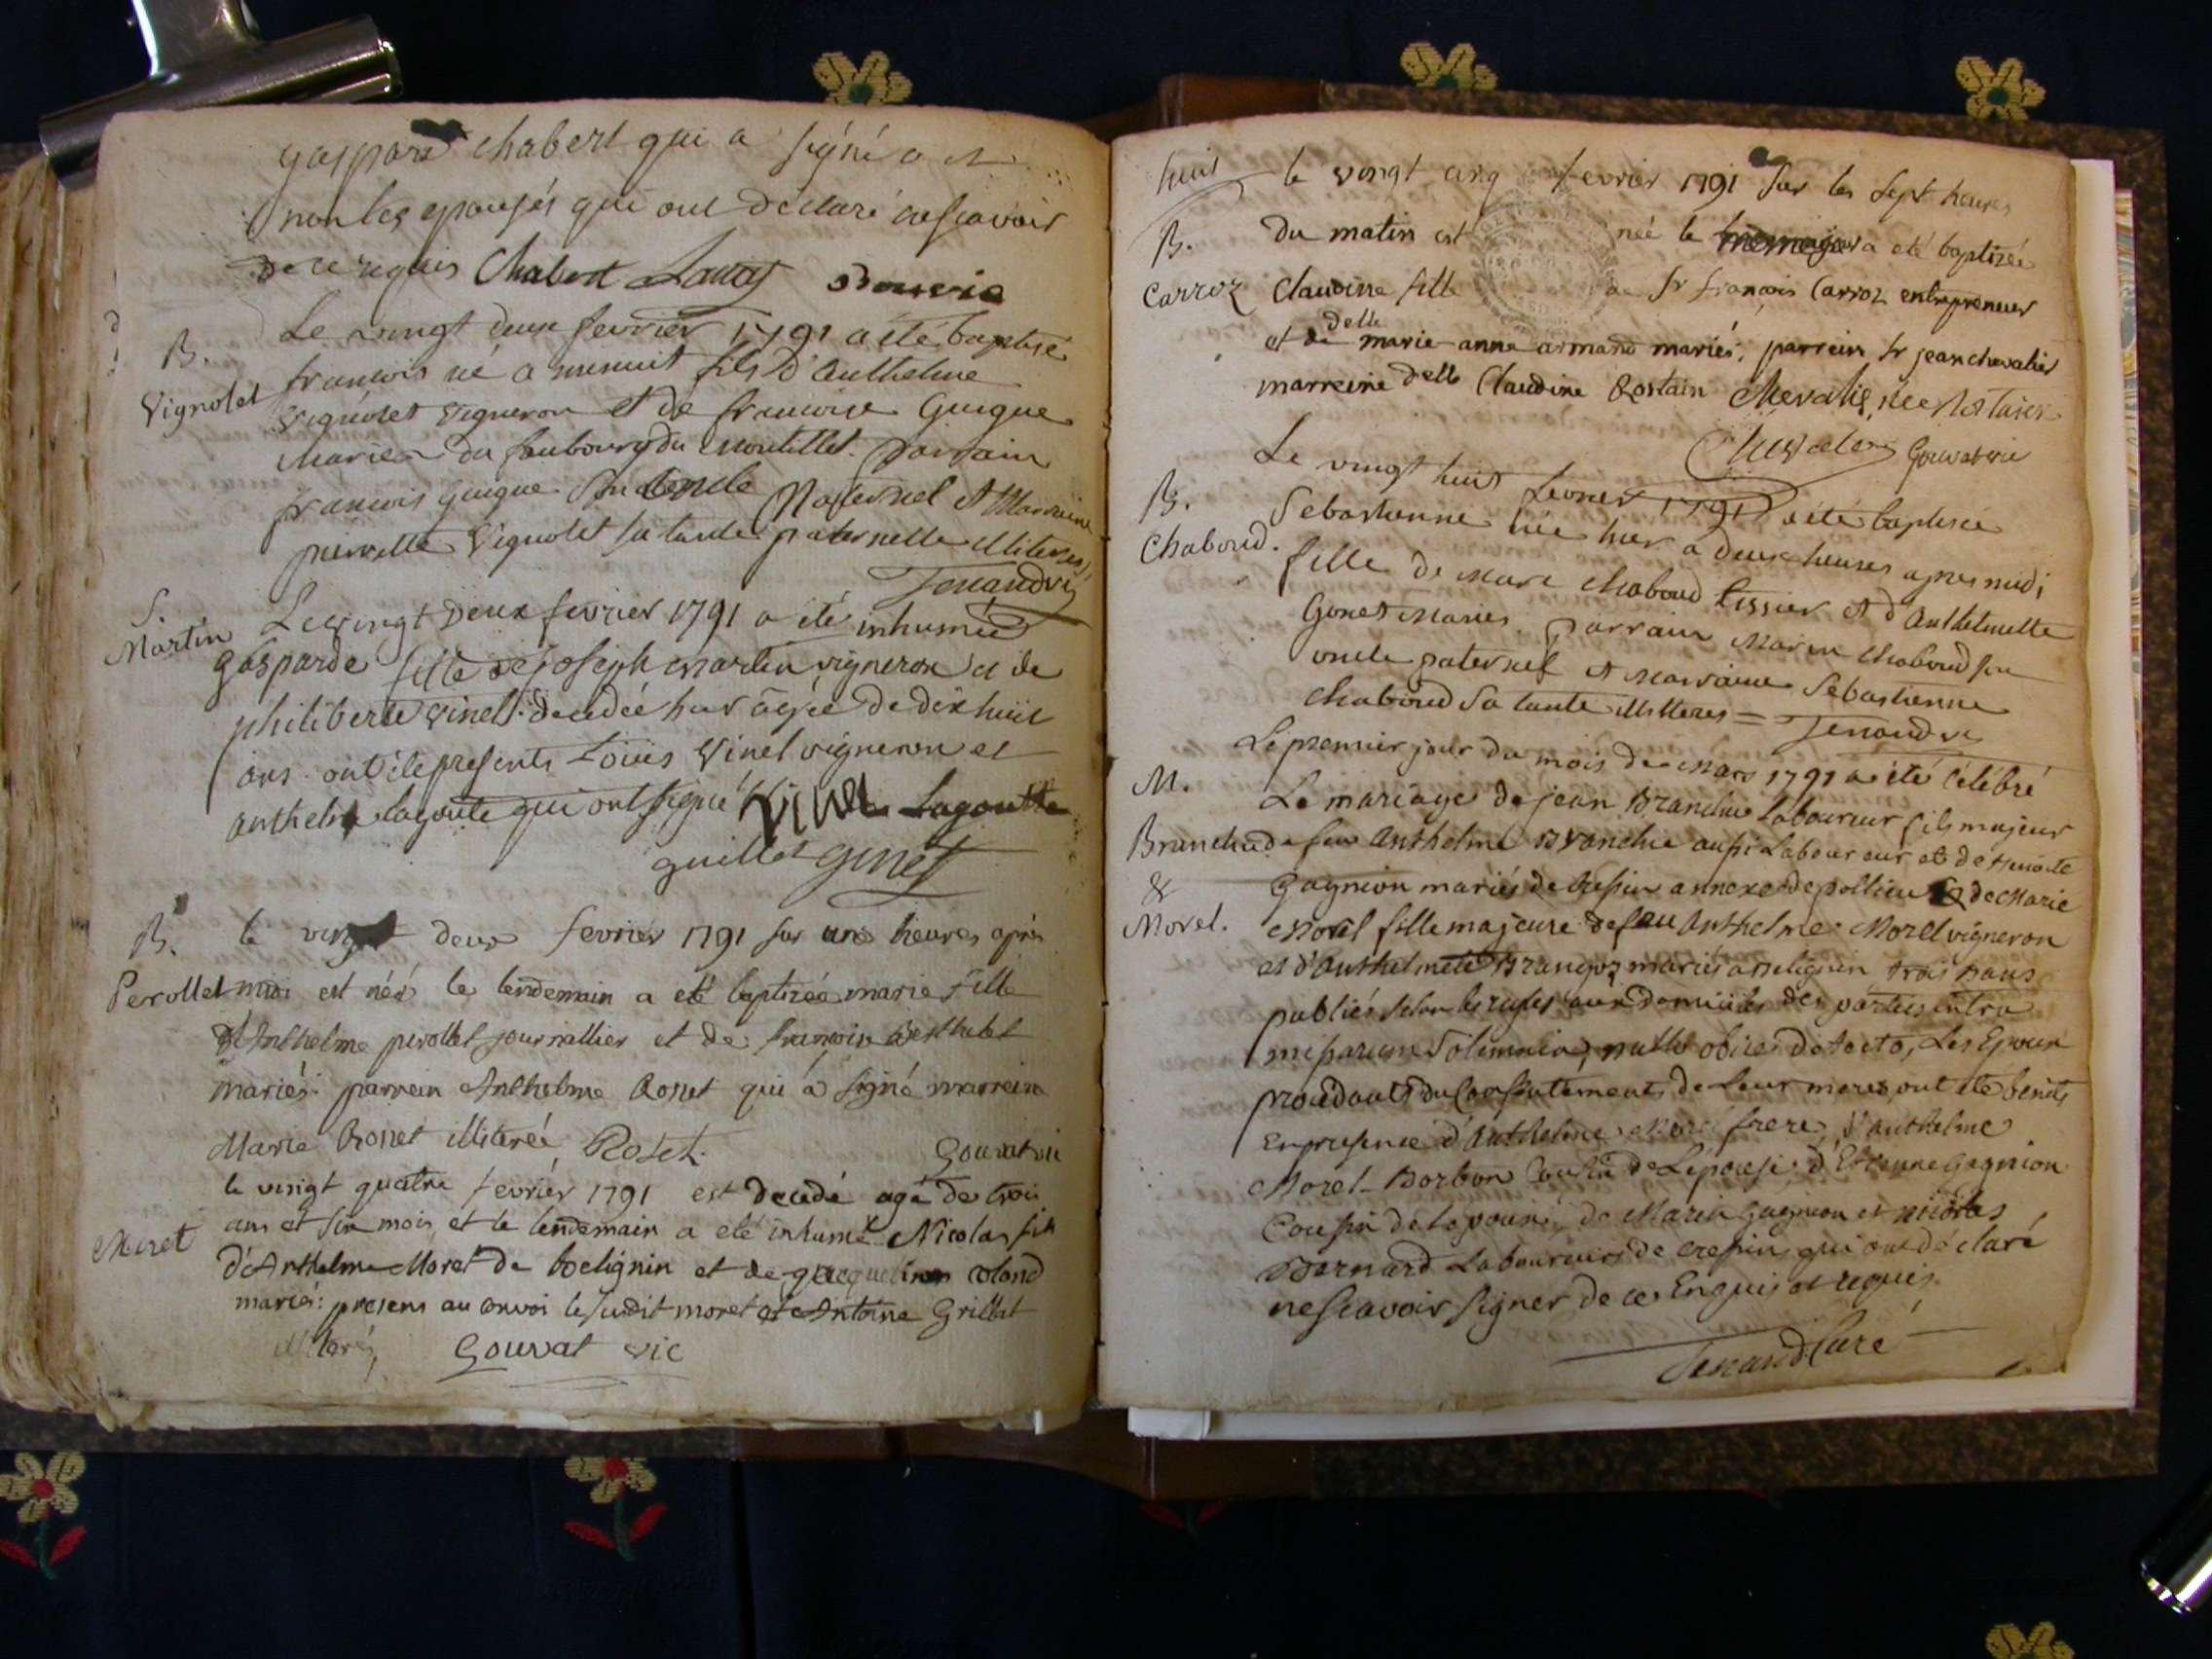 gaspard chabert qui a signé
non les epousés qui ont déclaré ne scavoir
de ce requis Chabert
B.
Vignolet
Le vingt deux fevrier 1791 a été baptisé
francois né a minuit fils d'Anthelme
vignolet vigneron et de francoise Guigue
Mariés du faubourg du Montillet. Parrain
francois guigue son oncle Maternel et Marraine
pierrette Vignolet sa tante paternelle illiteres
Tenand vic
S.
Martin
Le vingt deux fevrier 1791 a été inhumée
gasparde fille de joseph martin vigneron et de
philiberte vinel decedée hier agée de dix huit
ans. ont été presents Louis Vinel vigneron et
anthelme lagoutte qui ont signé Vinel Lagoutte
guillot ginet
B.
Perollet
le vingt deux fevrier 1791 sur une heures après
midi est née le lendemain a eté baptizée marie fille
d'Anthelme perollet journallier et de francoise Berthelet
mariés. parrein Anthelme Rosset qui a signé marreine
Marie Rosset illiterée Roset. Gouvat vic
Moret
le vingt quatre fevrier 1791 est decedé agé de trois
ans et six mois et le lendemain a eté inhumé Nicolas fils
d'Anthelme Moret de boelignin et de jacqueline
mariés: presens au convoi le susdit moret et Antoine Grillet
Gouvat vic
huit
B.
Carroz
le vingt cinq fevrier 1791 sur les sept heures
du matin est née le a eté baptizée
Claudine fille de Sr francois Carroz entrepreneur
et de delle marie anne armand mariés, parrein Sr jean chevalier
marreine delle Claudine Rostain
Chevalier Gouvat vic
B.
Chaboud.
Le vingt huit fevrier 1791 a été baptisée
Sebastienne née hier a deux heures apres midi
fille de Marc Chaboud tissier et d'Anthelmette
Gonet Mariés parrain Marin Chaboud son
oncle paternel et Marraine Sebastienne
Chaboud sa tante illiteres = Tenand vic
M.
Branche
&
Morel.
Le premier jour du mois de Mars 1791 a été célébré
Le mariage de jean Branche Laboureur fils majeur
de feu Anthelme Branche aussi Laboureur et de
Gagnion mariés de Crespin annexe de pollieu & de Marie
Morel fille majeure de feu Anthelme Morel vigneron
et d'Anthelmete Brangoz mariés a boelignin trois bans
publiés selon les regles aux domiciles des parties intra
missarum Solemnia, nullo obice detecto, Les Epoux
procedants du Consentement de Leur meres ont été benits
En presence d'Anthelme Morel frere, d'anthelme
Morel-Borbon Cousin de L'epouse, d'Etienne Gagnion
Cousin de l'epoux, de Marin Gagnion et
Bernard Laboureurs de Crespin qui ont déclaré
ne scavoir signer de ce Enquis et requis
Tenand Curé